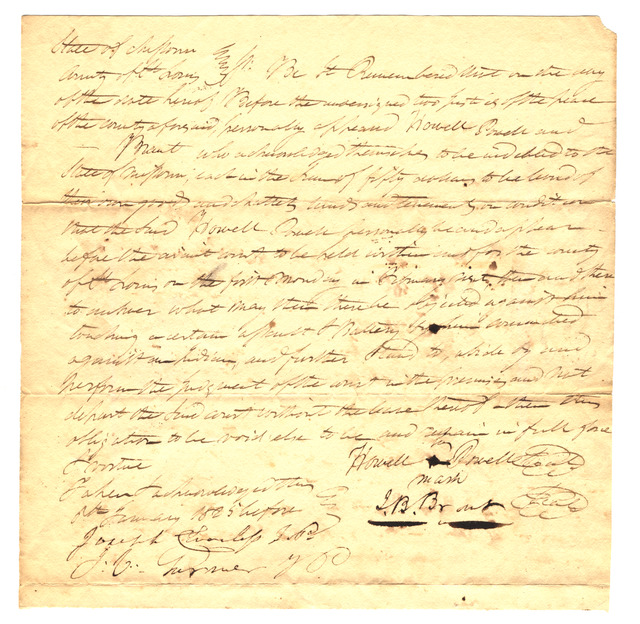 State of Missouri
County of St Louis Ss. Be it Remembered that on the day
of the date hereof Before the undersigned two Justices of the peace
of the County aforesaid personally appeared Howell Powell and
Brant who acknowledged themselves to be indebted to the
State of Missouri, each in the Sum of fifty dollars to be levied of
their own goods and chattels, lands and tenements, on condition
that the Said Howell Powell personally be and appear
before the circuit court to be held within and for the county
of St Louis on the first Monday in then and there
to answer what may then there be objected against him
touching a certain assault & Battery committed
against an Indian, and further Stand to, abide by and
perform the judgment of the court in the premises, and not
depart the Said court without the leave thereof then this
obligation to be void else to be and remain in full force
& virtue
Howell Powell Seal
mark
Taken & acknowledged this
January 1825 before
J. B. Brant Seal
Joseph J. P.
J. C. J P